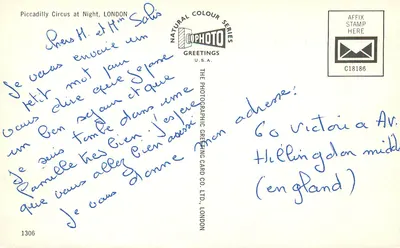 Piccadilly Circus at Night, LONDON
NATURAL COLOUR SERIES
PHOTO
GREETINGS
U.S.A.
AFFIX
STAMP
HERE
C18186
chers M. et Mme Salis
Je vous envoie un
petit mot pour
vous dire que je passe
un bon sejour et que
je suis tombé dans une
famille très bien. j'espère
que vous allez bien aussi
je vous donne mon adresse:
60 Victoria Av.
Hillingdon midd
(england)
THE PHOTOGRAPHIC GREETING CARD CO. LTD., LONDON
1306